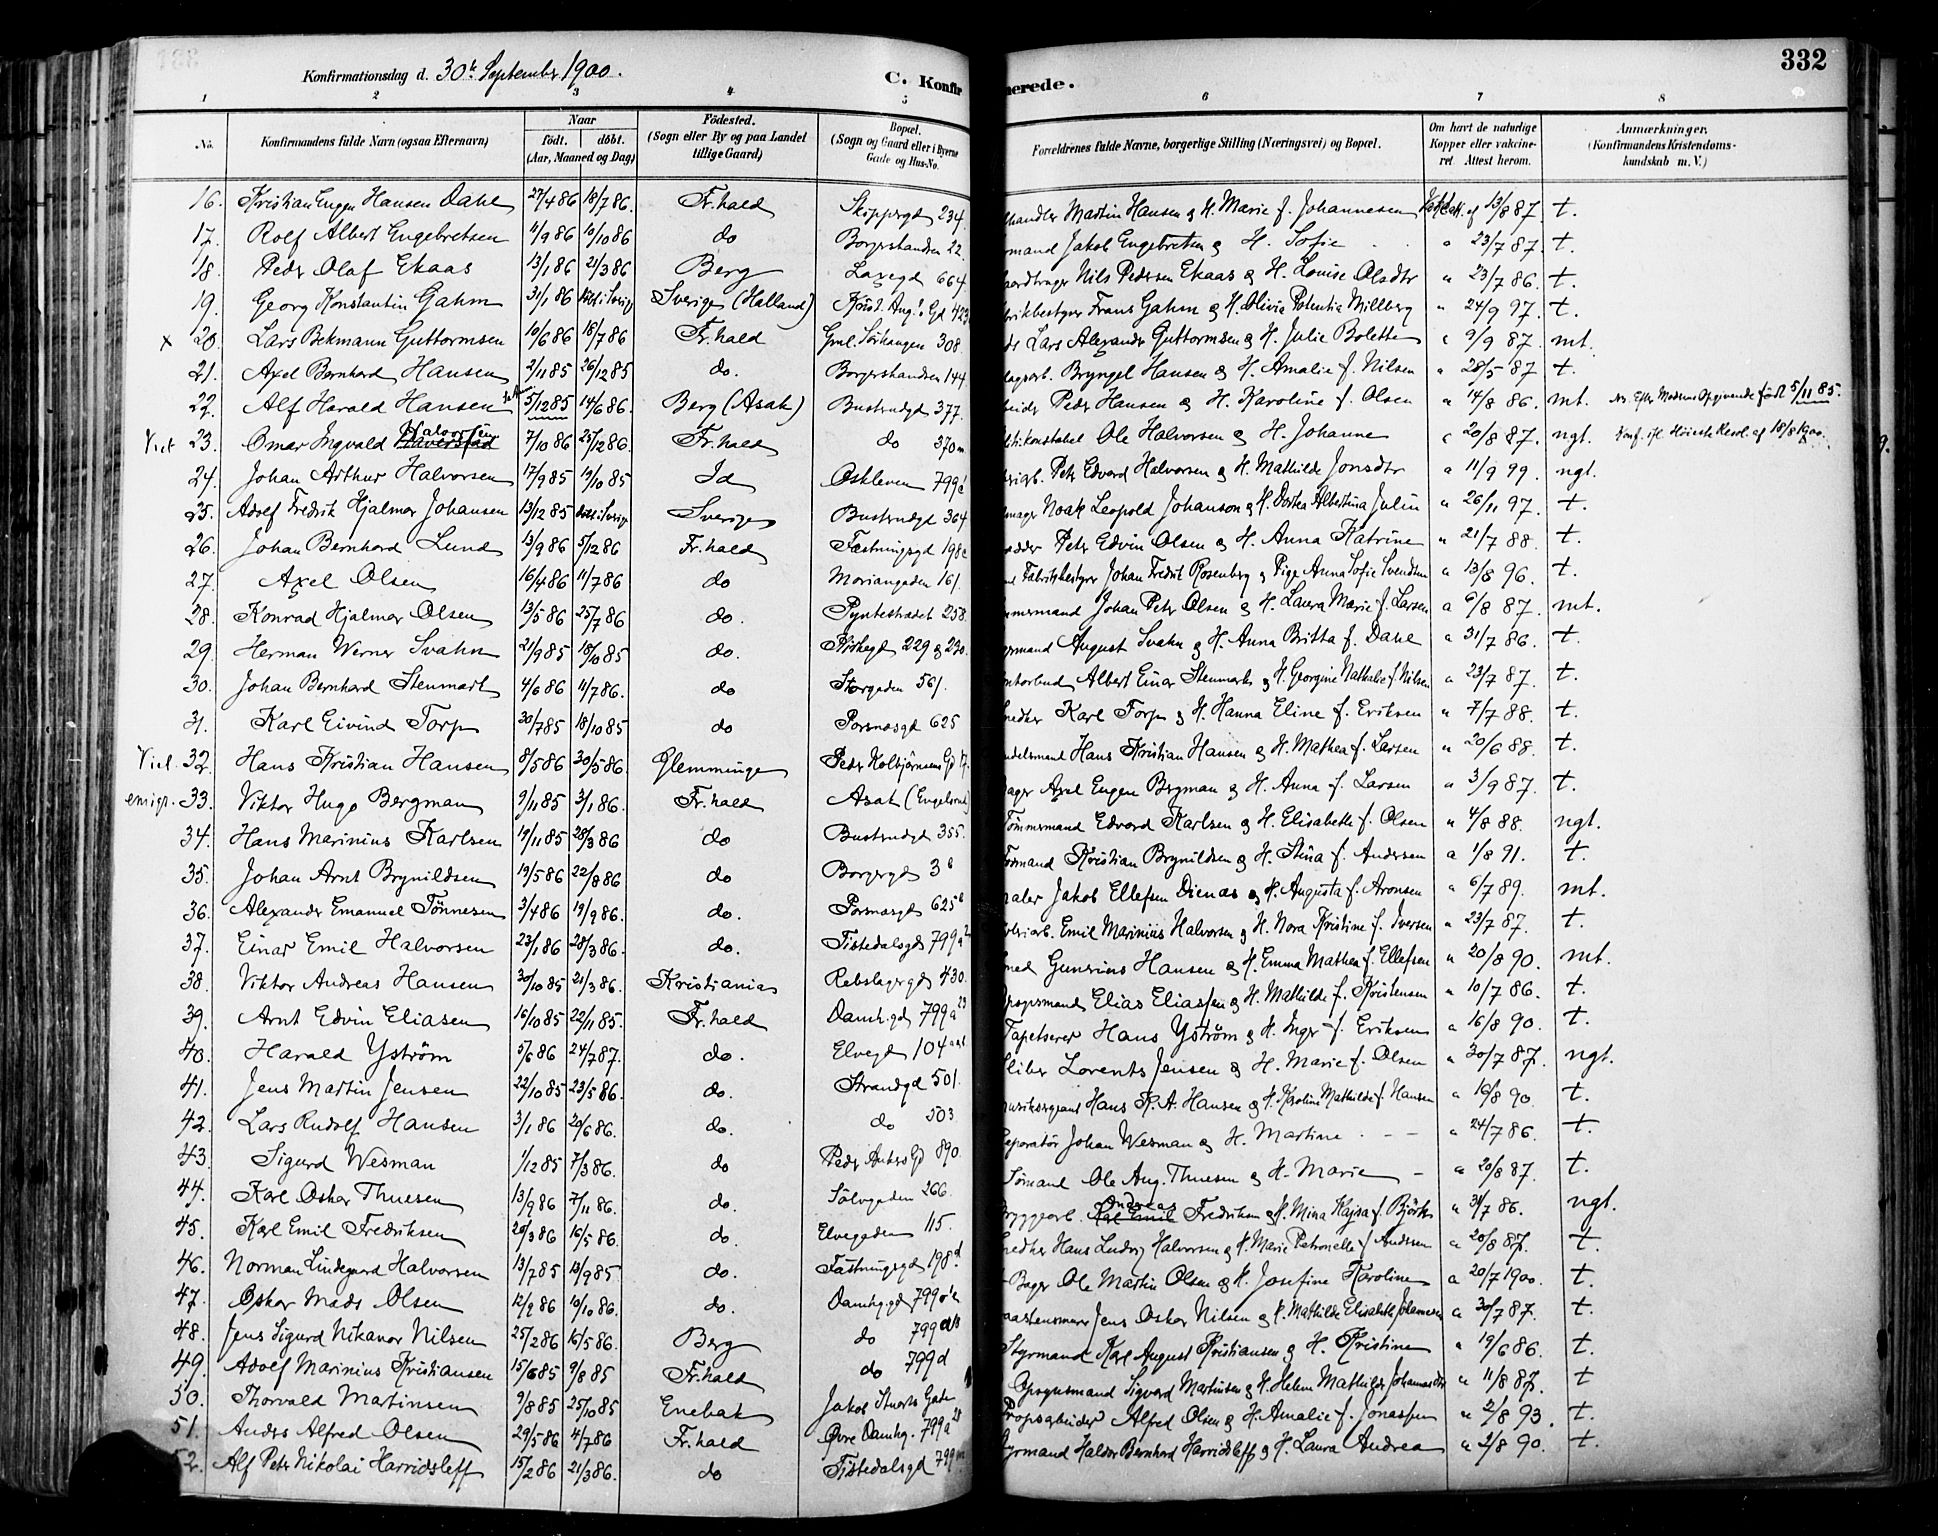 Konfirmationsdag d. 30te September 1900.
C. Konfirmerede.
332
1 2 3 4 5 6 7 8
No. Konfirmandens fulde Navn (ogsaa Efternavn) Naar født. døbt. (Aar, Maaned og Dag) Fødested. (Sogn eller By og paa Landet tillige Gaard) Bopæl. (Sogn og Gaard eller i Byerne Gade og Hus-No. Forældrenes fulde Navne, borgerlige Stilling (Næringsvei) og Bopæl. Om havt de naturlige Kopper eller vakcineret. Attest herom. Anmærkninger. (Konfirmandens Kristendomskundskab m. V.)
16. Kristian Eugen Hansen Dahl 27/4 86 18/7 86. Fr.hald Skippergd 234. Martin Hansen & H. Marie f. Johannesen 13/8 87. t.
17. Rolf Albert Engebretsen 11/9 86 10/10 86 do Borgershandsen 22. Jakob Engebretsen & H. Sofie " 23/7 87. t.
18. Peder Olaf Ekaas 13/1 86 21/3 86 Berg Laxegd 664. Nils Pedersen Ekaas & H. Louise Oladtr " 23/7 86. t.
19. Georg Konstantin Gahm 31/1 86 Sverige (Halland) Krist. Aug.s Gd 423 Frans Gahm & H. Olivia Potentia Millberg " 24/9 97. t.
x 20. Lars Bekmann Guttormsen 10/6 86 18/7 86 Fr.hald Gml. Sörhaugen 308. Lars Alexander Guttormsen & H. Julie Bolette " 9/9 87. mt.
21. Axel Bernhard Hansen 2/11 85 26/12 85 do. Borgershandsen 144. Bryngel Hansen & H. Amalie f. Nilsen " 28/5 87 t.
22. Alf Harald Hansen 5/12 85 14/6 86. Berg (Asak) Busterudgd 377. Peder Hansen & H. Karoline f. Olsen " 14/8 86. mt. Efter Moderens Opgivende født 5/11 85.
23. Omar Ingvald Halvorsen 7/10 86 25/12 86. Fr.hald do 370 Ole Halvorsen & H. Johanne " 20/8 87. ngt. Konf. ifl. Høieste Resol. af 18/8 1900.
24. Johan Arthur Halvorsen 17/9 85 19/10 85 Id Oskleven 799 Petr Edvard Halvorsen & H. Mathilde Jonsdtr " 11/9 99. ngt.
25. Adolf Fredrik Hjalmar Johansen 13/12 85 Sverige Busterudgd 364 Noak Leopold Johanson & H. Albertina Julin " 26/11 97. t.
26. Johan Bernhard Lund 13/9 86 5/12 86 Fr.hald Fæstningsgd 198 Peter Edvin Olsen & H. Anna Katrine " 21/7 88. t.
27. Axel Olsen 16/4 86 11/7 86 do Moriangaden 161. Fabrikbestyrer Johan Fredrik Rosenberg & Pige Anna Sofie Svendsen " 13/8 96. t.
28. Konrad Hjalmar Olsen 13/5 86 25/7 86 do. Pyntestrædet 258. Johan Peter Olsen & H. Laura Marie f. Larsen " 6/8 87. mt.
29. Herman Werner Svahn 21/9 85 18/10 85 do. Kirkegd 229 & 230. August Svahn & H. Anna Britta f. Dahl " 31/7 86. t.
30. Johan Bernhard Stenmark 4/6 86 11/7 86. do Storgaden 561. Albert Einar Stenmark & H. Georgine Nathalie f. Nilsen " 23/7 87. t.
31. Karl Eivind Torp 30/7 85 18/10 85 do Porsnæsgd 625 Karl Torp & H. Hanna Eline f. Eriksen " 7/7 88. t.
32. Hans Kristian Hansen 8/5 86 30/5 86. Glemminge Peder Kolbjørnsens Gd 17. Hans Kristian Hansen & H. Mathea f. Larsen " 20/6 88. t.
emigr. 33. Viktor Hugo Bergman 9/11 85 3/1 86. Fr.hald Asak Axel Eugen Bergman & H. Anna f. Larsen " 3/9 87. t.
34. Hans Marinius Karlsen 19/11 85 28/3 86 do Busterudgd 355. Tømmermand Edvard Karlsen & H. Elisabeth f. Olsen " 4/8 88. ngt.
35. Johan Arnt Brynildsen 19/5 86 22/8 86 do Borgergd 3 b Kristian Brynildsen & H. Stina f. Andersen " 1/8 91. t.
36. Alexander Emanuel Tönnesen 3/4 86 19/9 86. do. Porsnæsgd 625 b Jakob Ellefsen Dienes & H. Augusta f. Aronsen " 6/7 89. mt.
37. Einar Emil Halvorsen 23/1 86 28/3 86. do. Tistedalsgd 799 Emil Marinius Halvorsen & H. Nora Kristine f. Iversen " 23/7 87. t.
38. Viktor Andreas Hansen 30/10 85 21/3 86. Kristiania Rebslagergd 430. Gunerius Hansen & H. Emma Mathea f. Ellefsen " 20/8 90. mt.
39. Arnt Edvin Eliasen 16/10 85 22/11 85. Fr.hald Damhgd 799 a 23 Elias Eliassen & H. Mathilde f. Kristensen " 10/7 86. t.
40. Harald Yström 5/6 86 24/7 87. do. Elvegd 104 Tapetserer Hans Yström & H. Inger f. Eriksen " 16/8 90. t.
41. Jens Martin Jensen 22/10 85 23/5 86. do. Strandgd 501. Lorents Jensen & H. Marie f. Olsen " 30/7 87. ngt.
42. Lars Rudolf Hansen 3/1 86 20/6 86. do. do 503 Hans K. A. Hansen & H. Karoline Mathilde f. Hansen " 16/8 90. t.
43. Sigurd Wesman 1/12 85 7/3 86. do Peder Ankers Gd 890 Johan Wesman & H. Martine " 24/7 86. t.
44. Karl Oskar Thuesen 13/9 86 7/11 86. do. Sölvgaden 266. Sømand Ole Aug. Thuesen & H. Marie " 20/8 87. t.
45. Karl Emil Fredriksen 20/3 86 16/5 86. do. Elvegaden 115. Andreas Fredriksen & H. Mina Kajsa f. Björk " 31/7 86. ngt.
46. Norman Lindegaard Halvorsen 13/7 85 13/9 85 do. Fæstningsgd 198 d Hans Ludvig Halvorsen & H. Marie Petronelle f. Andersen " 20/8 87. t.
47. Oskar Mads Olsen 12/9 86 10/10 86. do. Damhg.gd 799 Bager Ole Martin Olsen & H. Josefine Karoline " 20/7 1900. t.
48. Jens Sigurd Nikanor Nilsen 25/2 86 16/5 86. Berg do 799 Jens Oskar Nilsen & H. Mathilde Elisabeth Johannesen " 30/7 87. t.
49. Adolf Marinius Kristiansen 15/6 85 9/8 85 Fr.hald do 799 d Styrmand Karl August Kristiansen & H. Kristine " 19/6 86. t.
50. Thorvald Martinsen 9/8 85 25/10 85 Enebak Jakob Stuarts Gade Opsynsmand Sigvard Martinsen & H. Helene Mathilde Johannesdtr " 11/8 87. t
51. Anders Alfred Olsen 29/5 86 4/7 86 Fr.hald Øvre Damhg. 799 a Propsarbeider Alfred Olsen & H. Amalie f. Jonassen " 2/8 93. t.
52. Alf Petr Nikolai Harridsleff 15/2 86 21/3 86. do Tistedalsgd 799 Haldor Bernhard Harridsleff & H. Laura Andrea " 2/8 90. t.